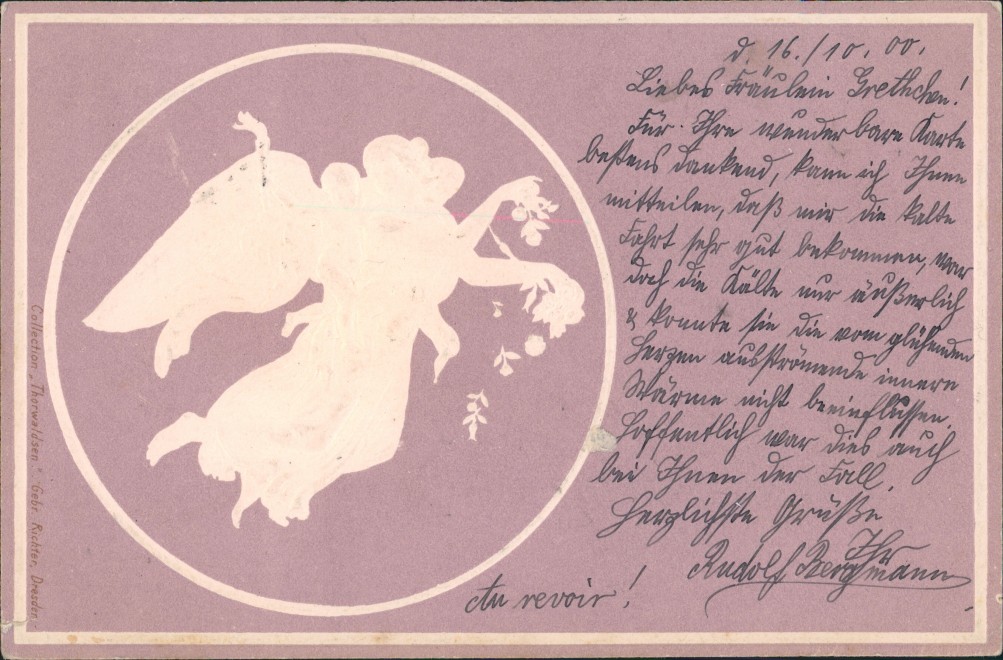 d. 16./10. 00.
Liebes Fräulein Grethchen!
Für Ihre wunderbare Karte
bestens dankend, kann ich Ihnen
mitteilen, daß mir die kalte
Fahrt sehr gut bekommen, war
doch die Kälte nur äußerlich
& konnte sie die vom glühenden
Herzen ausströmende innere
Wärme nicht beeinflussen.
Hoffentlich war dies auch
bei Ihnen der Fall.
Herzlichste Grüße
Ihr
Rudolf Bergmann
Au revoir!
Collection „Thorwaldsen" Gebr. Richter, Dresden.